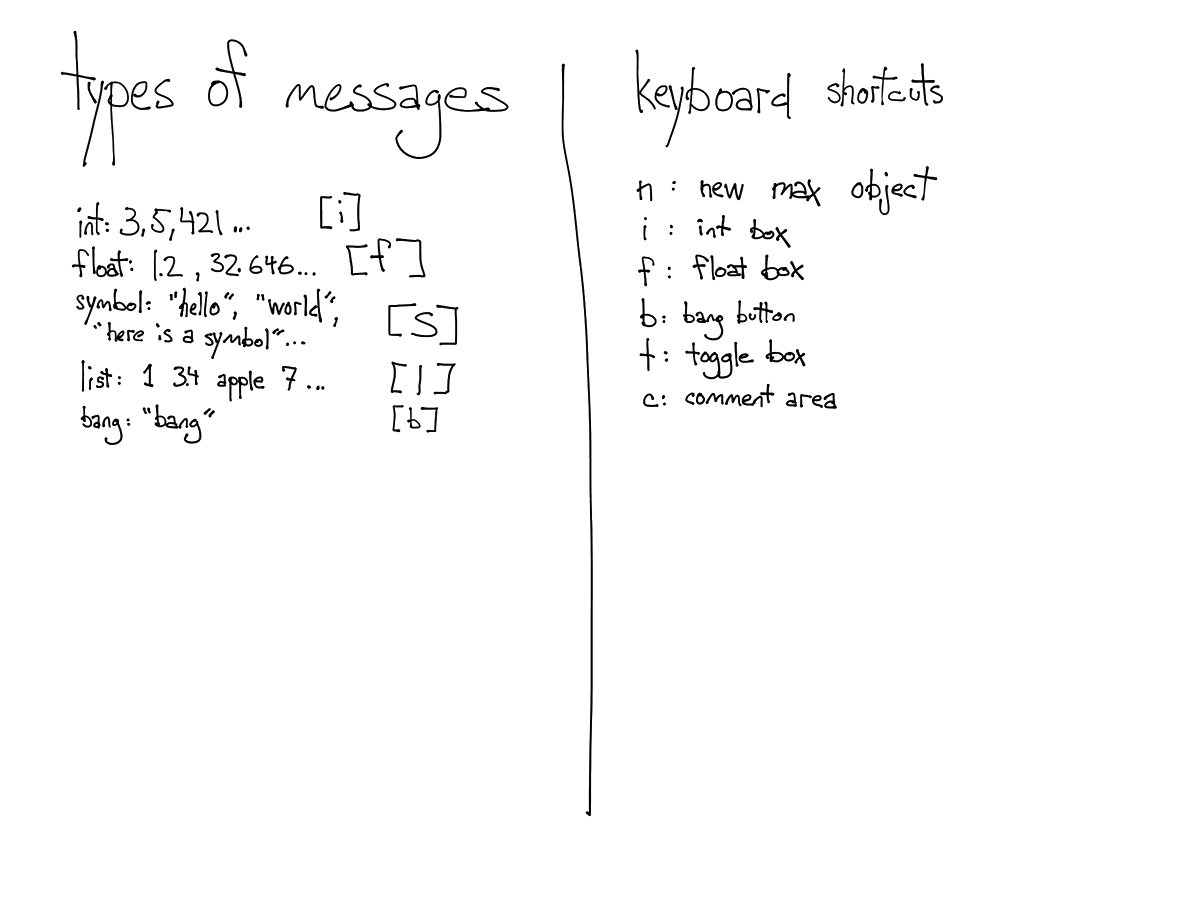 types of messages
int: 3, 5, 421 ... [i]
float: 1.2 , 32.646... [f]
symbol: "hello", "world",
"here is a symbol"... [S]
list: 1 3.4 apple 7 ... [l]
bang: "bang" [b]
keyboard shortcuts
n : new max object
i : int box
f : float box
b: bang button
t: toggle box
c: comment area